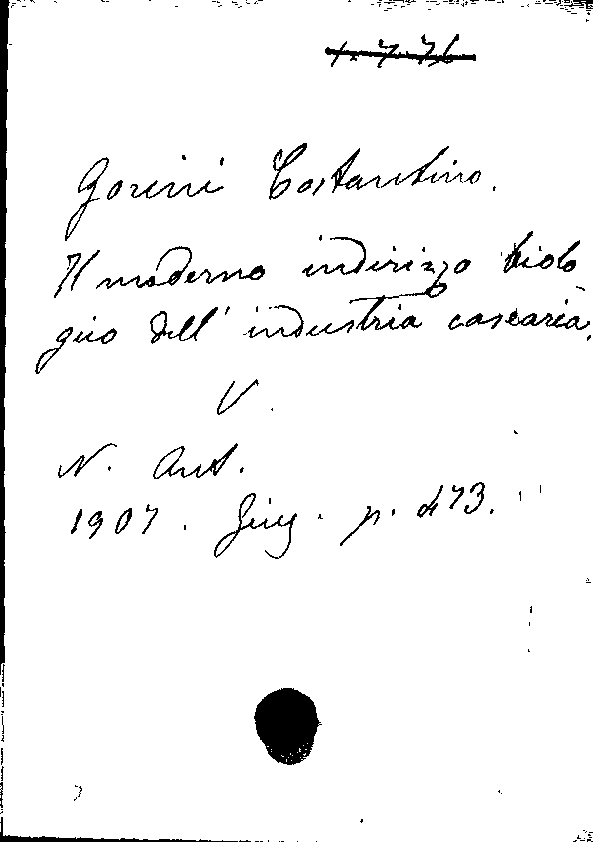 1.7.76
Gorini Costantino.
Il moderno indirizzo biolo
gico dell' industria casearia.
V.
N. Ant.
1907. Giug. p. 473.